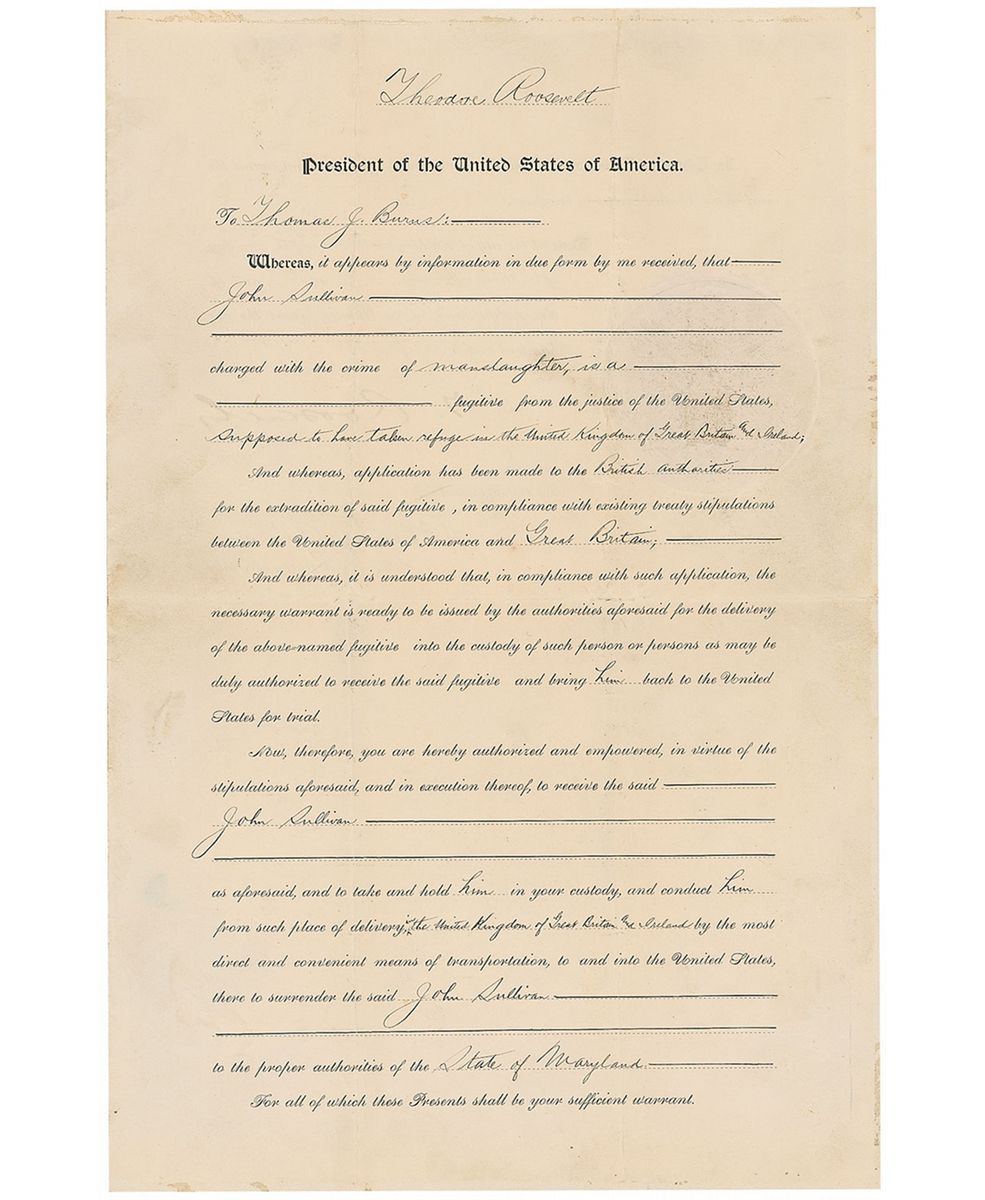 Theodore Roosevelt
President of the United States of America.
To Thomas J. Burns:
Whereas, it appears by information in due form by me received, that
John Sullivan
charged with the crime of manslaughter, is a
fugitive from the justice of the United States,
supposed to have taken refuge in the United Kingdom of Great Britain and Ireland;
And whereas, application has been made to the British authorities
for the extradition of said fugitive, in compliance with existing treaty stipulations
between the United States of America and Great Britain;
And whereas, it is understood that, in compliance with such application, the
necessary warrant is ready to be issued by the authorities aforesaid for the delivery
of the above-named fugitive into the custody of such person or persons as may be
duly authorized to receive the said fugitive and bring him back to the United
States for trial.
Now, therefore, you are hereby authorized and empowered, in virtue of the
stipulations aforesaid, and in execution thereof, to receive the said
John Sullivan
as aforesaid, and to take and hold him in your custody, and conduct him
from such place of delivery, in the United Kingdom of Great Britain and Ireland by the most
direct and convenient means of transportation, to and into the United States,
there to surrender the said John Sullivan
to the proper authorities of the State of Maryland.
For all of which these Presents shall be your sufficient warrant.